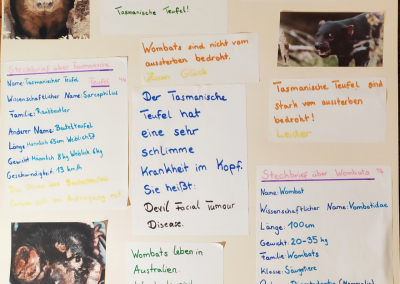 Tasmanische Teufel!
Wombats sind nicht vom
aussterben bedroht.
Zum Glück
Tasmanische Teufel sind
stark vom aussterben
bedroht!
Leider
Steckbrief über Tasmanische
Teufel
Name: Tasmanischer Teufel
Wissenschaftlicher Name: Sarcophilus
Familie: Raubbeutler
Anderer Name: Beutelteufel
Länge Männlich 65cm Weiblich 57
Gewicht Männlich 8kg Weiblich 6kg
Geschwindigkeit 13 km/h
Der Tasmanische
Teufel hat
eine sehr
schlimme
Krankheit im Kopf.
Sie heißt:
Devil Facial Tumour
Disease.
Wombats leben in
Australien.
Steckbrief über Wombats
Name: Wombat
Wissenschaftlicher Name: Vombatidae
Länge: 100cm
Gewicht: 20-35 kg
Familie: Wombats
Klasse: Säugetiere